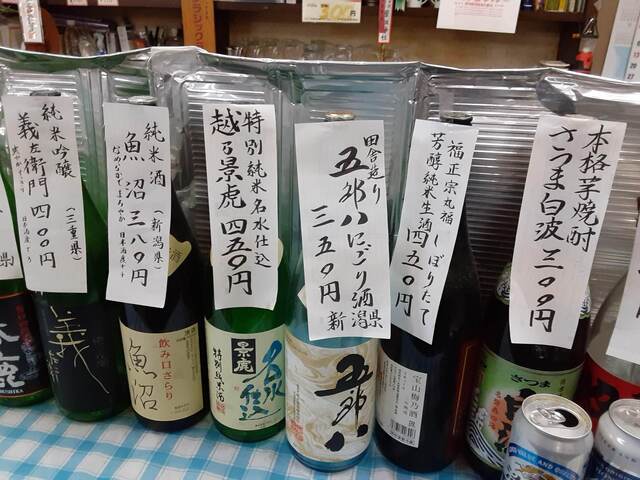 純米吟醸
義左衛門 四〇〇円
(三重県)
純米酒
(新潟県)
魚沼 三八〇円
なめらかでまろやか 日本酒度+
特別純米名水仕込
越乃景虎 四五〇円
田舎造り
五郎八にごり酒
三五〇円
新潟県
福正宗丸福 しぼりたて
芳醇純米生酒
四五〇円
本格芋焼酎
さつま白波 三〇〇円
義
飲み口さらり
魚沼
景虎
名水仕込
特別純米酒
五郎八
宝山梅乃酒
さつま
白
鹿
クラシック